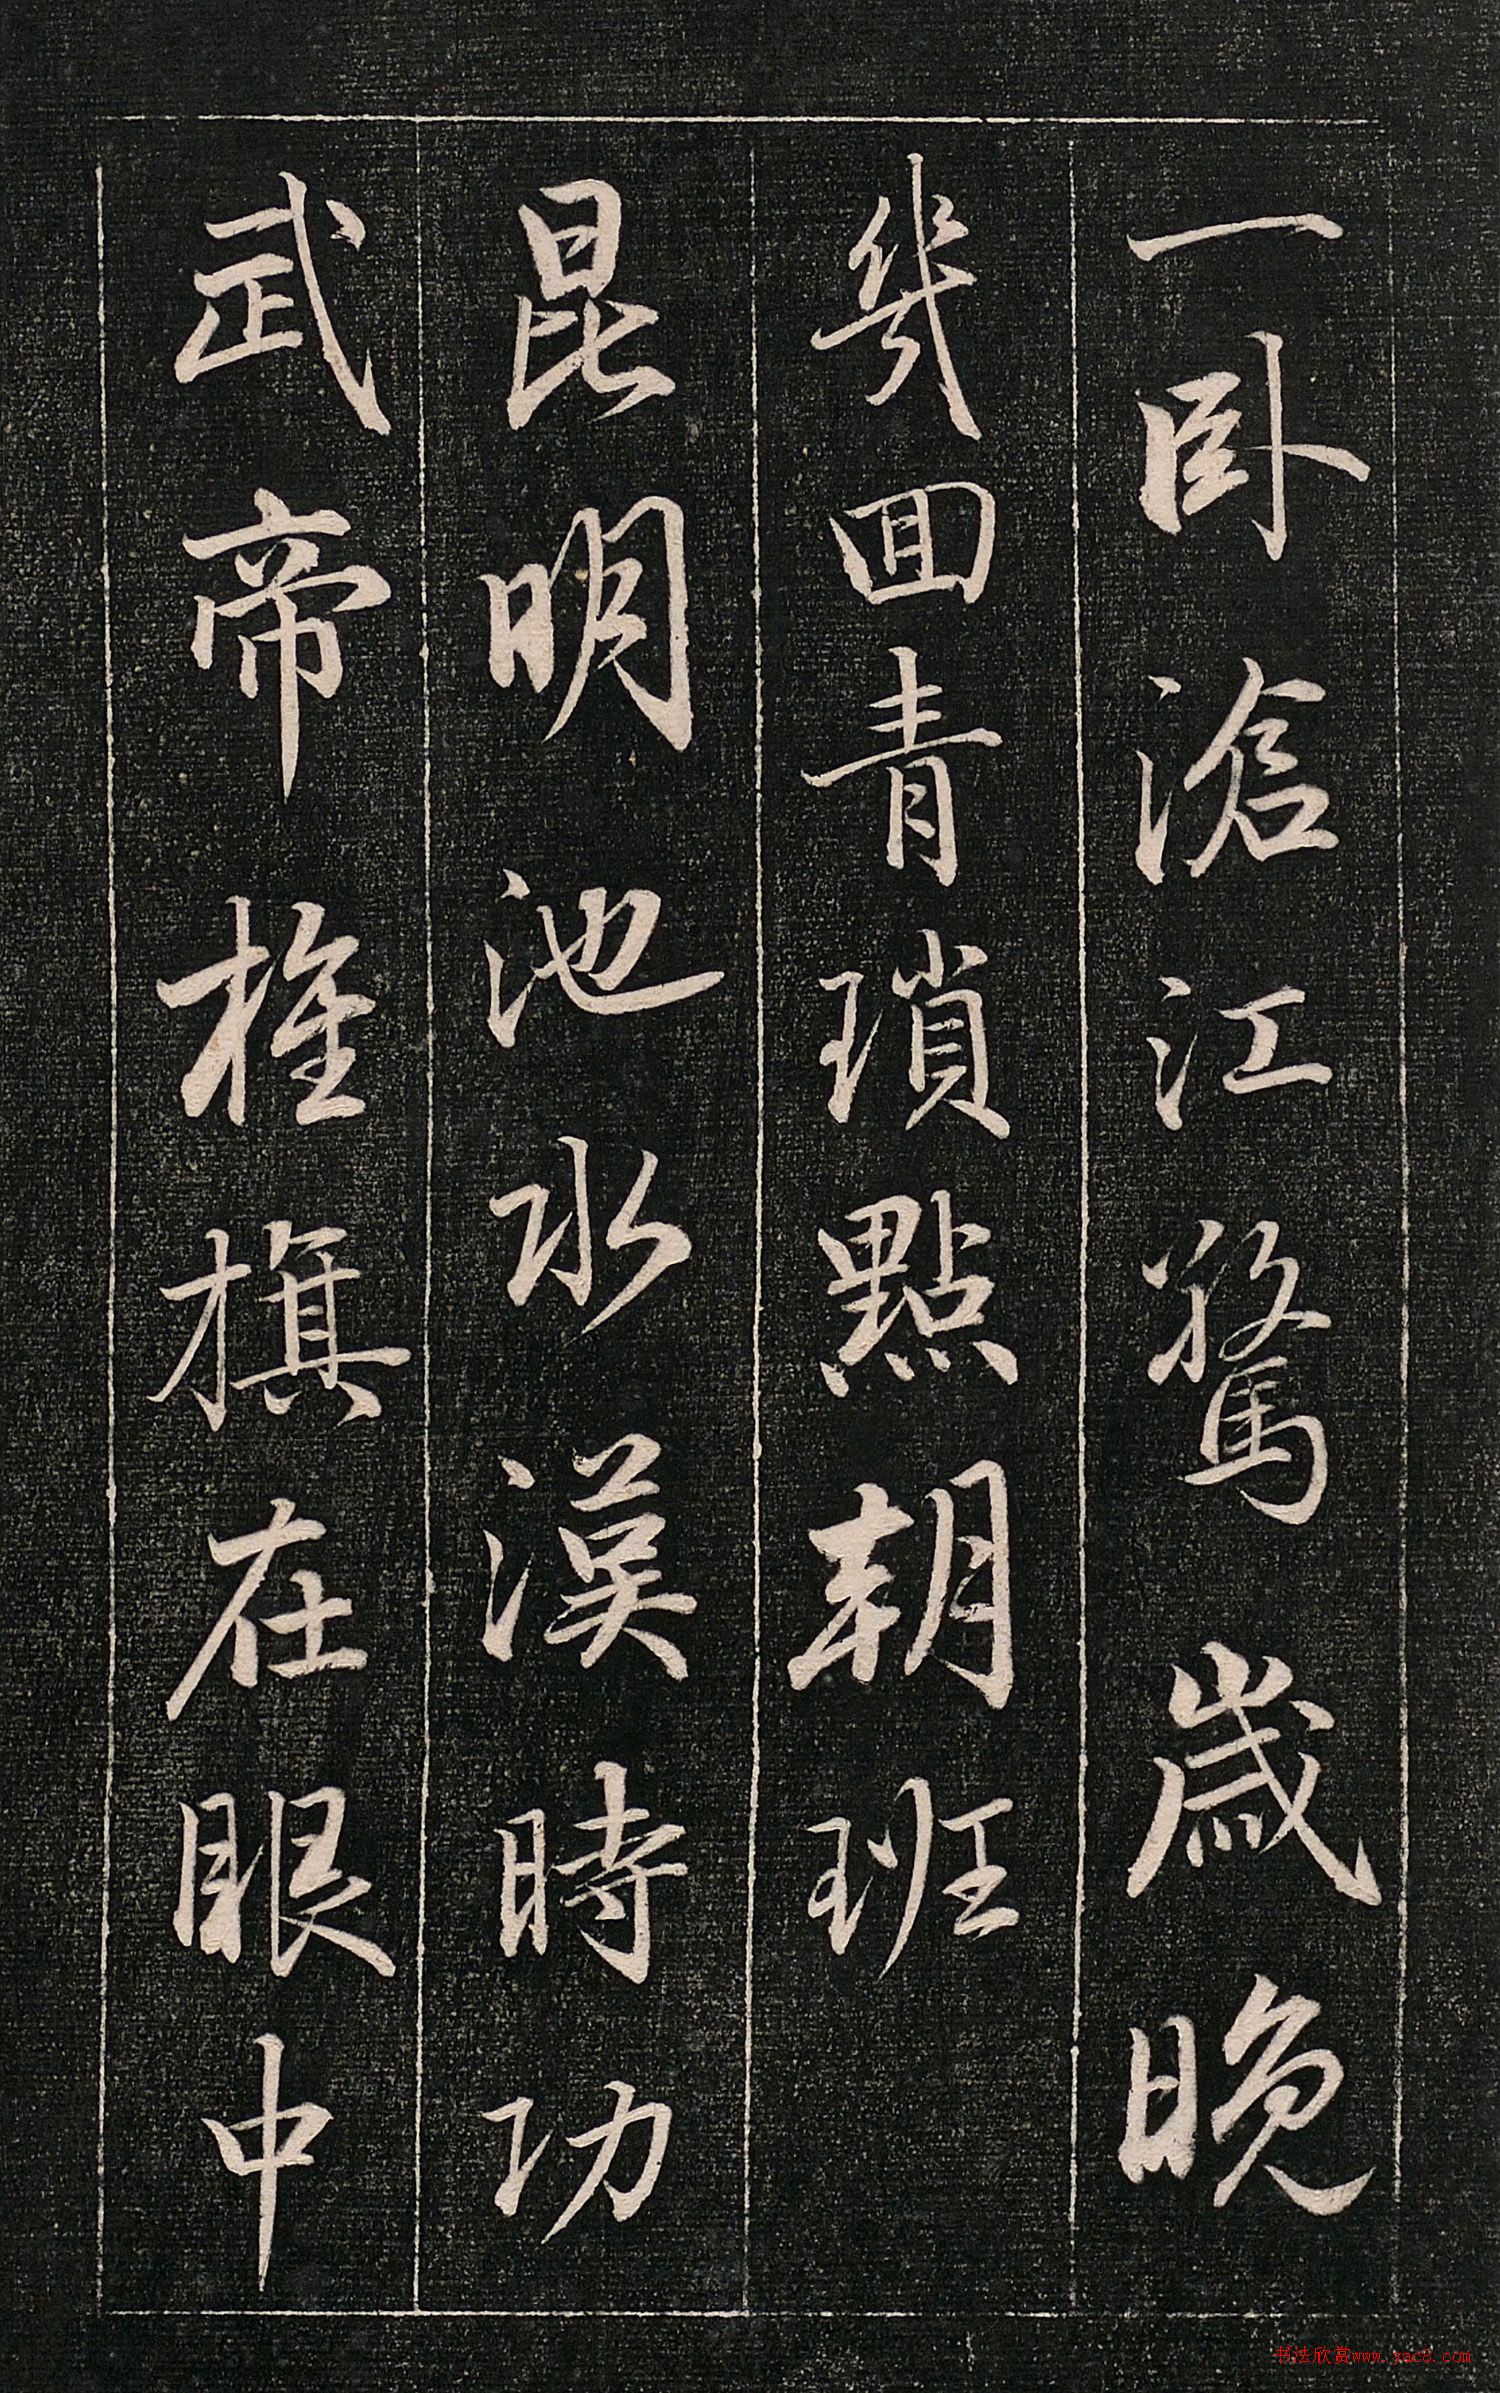 一卧滄江驚歲晚
幾回青瑣點朝班
昆明池水漢時功
武帝旌旗在眼中
书法欣赏www.yac8.com